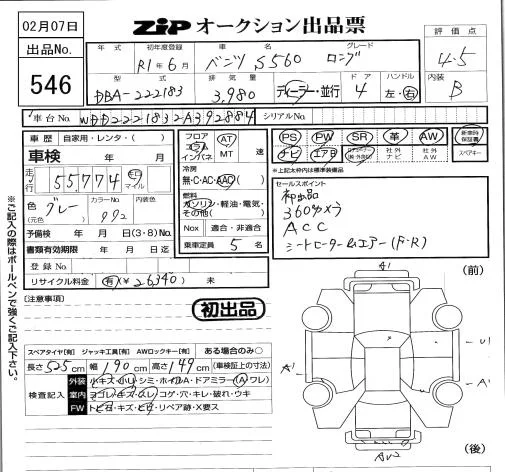 02月07日
ZIP オークション出品票
出品No.
546
年式 初年度登録 車名 グレード
R1年6月 ベンツ S560 ロング
型式 排気量 ドア ハンドル
DBA-222183 3,980 ディーラー・並行 4 左・右
評価点
4.5
内装
B
車台No. WDD2221832A392884 シリアルNo.
車歴 自家用・レンタ・( )
車検 年 月
走行 55,774 km マイル
色 グレー (元色) カラーNo. 992 内装色
予備検 年 月 日(3・8)No.
書類有効期限 年 月 日迄
登録No.
リサイクル料金 有(¥26340) 未
フロア コラム インパネ AT MT 速
冷房
無・C・AC・AAC
燃料
ガソリン・軽油・電気・その他( )
Nox 適合・非適合
乗車定員 5 名
PS PW SR 革 AW 新車時保証書
ナビ エアB 社外ナビ 社外AW スペアキー
※上記太枠内は標準装備品
セールスポイント
初出品
360カメラ
ACC
シートヒーター&エアー(F・R)
※ご記入の際はボールペンで強くご記入下さい。
(注意事項)
初出品
スペアタイヤ[有] ジャッキ工具[有] AWロックキー[有] ある場合のみ○
長さ525cm 幅190cm 高さ149cm (車検証上の寸法)
検査記入
外装 小キズ・小リ・シミ・ホイルA・ドアミラー(A・ワレ)
室内 ヨゴレ・キズ・スレ・コゲ・穴・キレ・破れ・ウキ
FW トビ石・キズ・ヒビ・リペア跡・X要ス
(前)
A1
A1
U1
A1
(後)